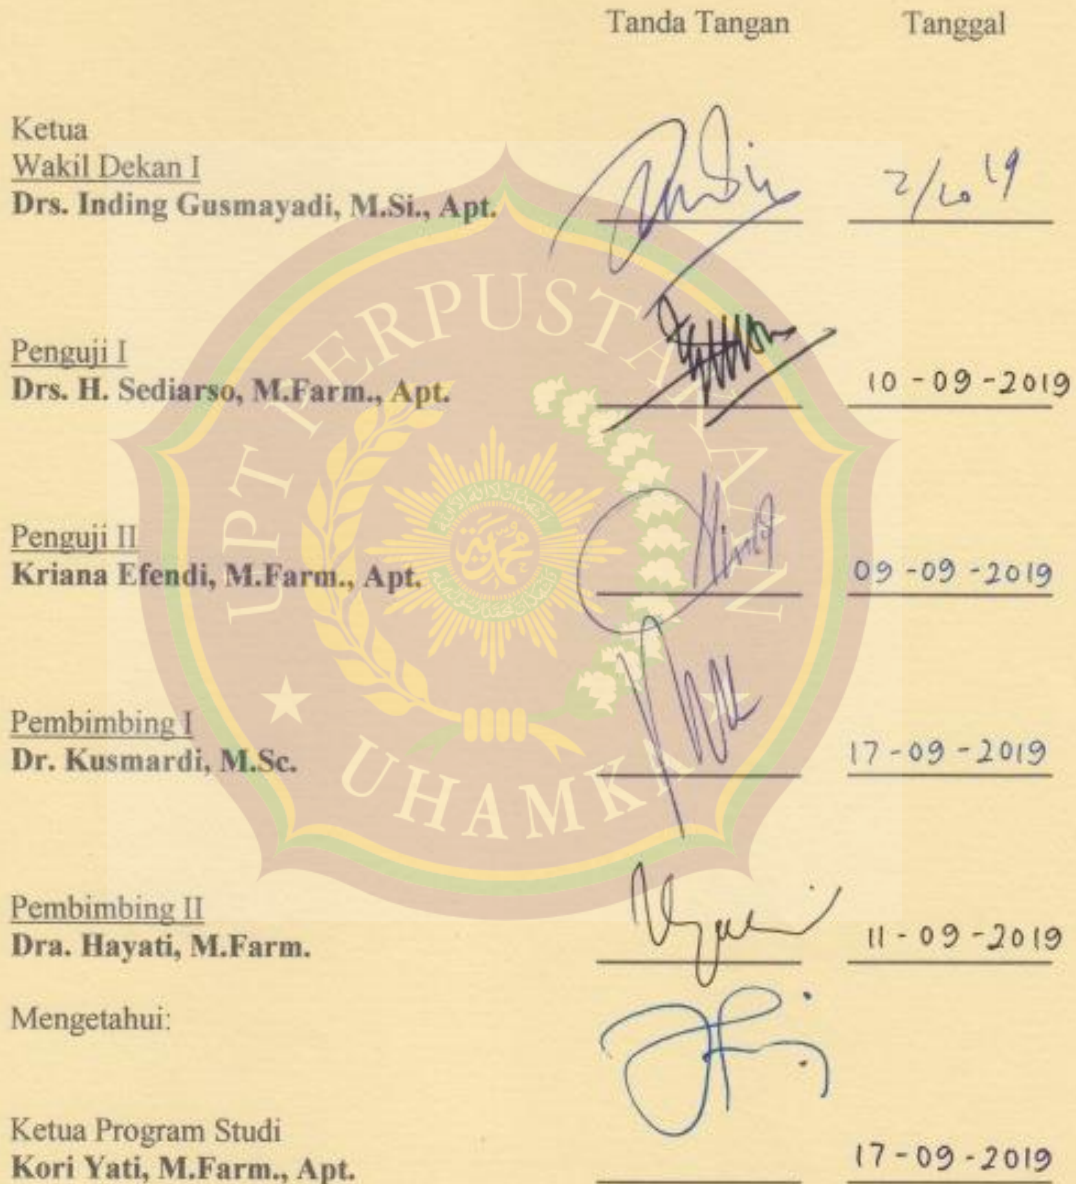 Tanda Tangan Tanggal
Ketua
Wakil Dekan I
Drs. Inding Gusmayadi, M.Si., Apt. 2/10 19
Penguji I
Drs. H. Sediarso, M.Farm., Apt. 10-09-2019
Penguji II
Kriana Efendi, M.Farm., Apt. 09-09-2019
Pembimbing I
Dr. Kusmardi, M.Sc. 17-09-2019
Pembimbing II
Dra. Hayati, M.Farm. 11-09-2019
Mengetahui:
Ketua Program Studi
Kori Yati, M.Farm., Apt. 17-09-2019
UPT PERPUSTAKAAN
UHAMKA